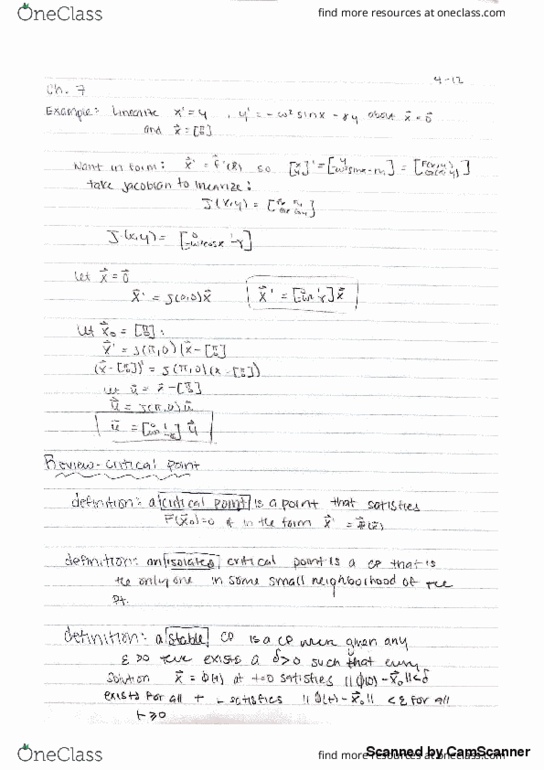 OneClass
find more resources at oneclass.com
4-12
Ch. 7
Example: Linearize x' = y , y' = -ω² sinx - γy about x⃗ = 0⃗
and x⃗ = [π 0]
Want in form: x⃗' = f⃗(x⃗) so [x y]' = [y -ω² sinx - γy] = [F(x,y) G(x,y)]
take Jacobian to linearize:
J(x,y) = [Fx Fy Gx Gy]
J(x,y) = [0 1 -ω²cosx -γ]
Let x⃗ = 0⃗
x⃗' = J(0,0)x⃗ x⃗' = [0 1 -γ]x⃗
Let x⃗₀ = [π 0]:
x⃗' = J(π,0)(x⃗ - [π 0]
(x⃗ - [π 0])' = J(π,0)(x - [π 0])
Let u⃗ = x⃗ - [π 0]
u⃗ = J(π,0)u⃗
u⃗ = [0 1 -γ] u⃗
Review - critical point
definition: a critical point is a point that satisfies
F(x⃗₀)=0 & in the form x⃗' = F(x⃗)
definition: an isolated critical point is a cp that is
the only one in some small neighborhood of the
pt.
definition: a stable cp is a cp when given any
ε>0 there exists a δ>0 such that every
solution x⃗ = ϕ(t) at t=0 satisfies ||ϕ(0) - x⃗₀||<δ
exists for all t satisfies ||ϕ(t) - x⃗₀|| <ε for all
t≥0
Scanned by CamScanner
OneClass
find more resources at oneclass.com